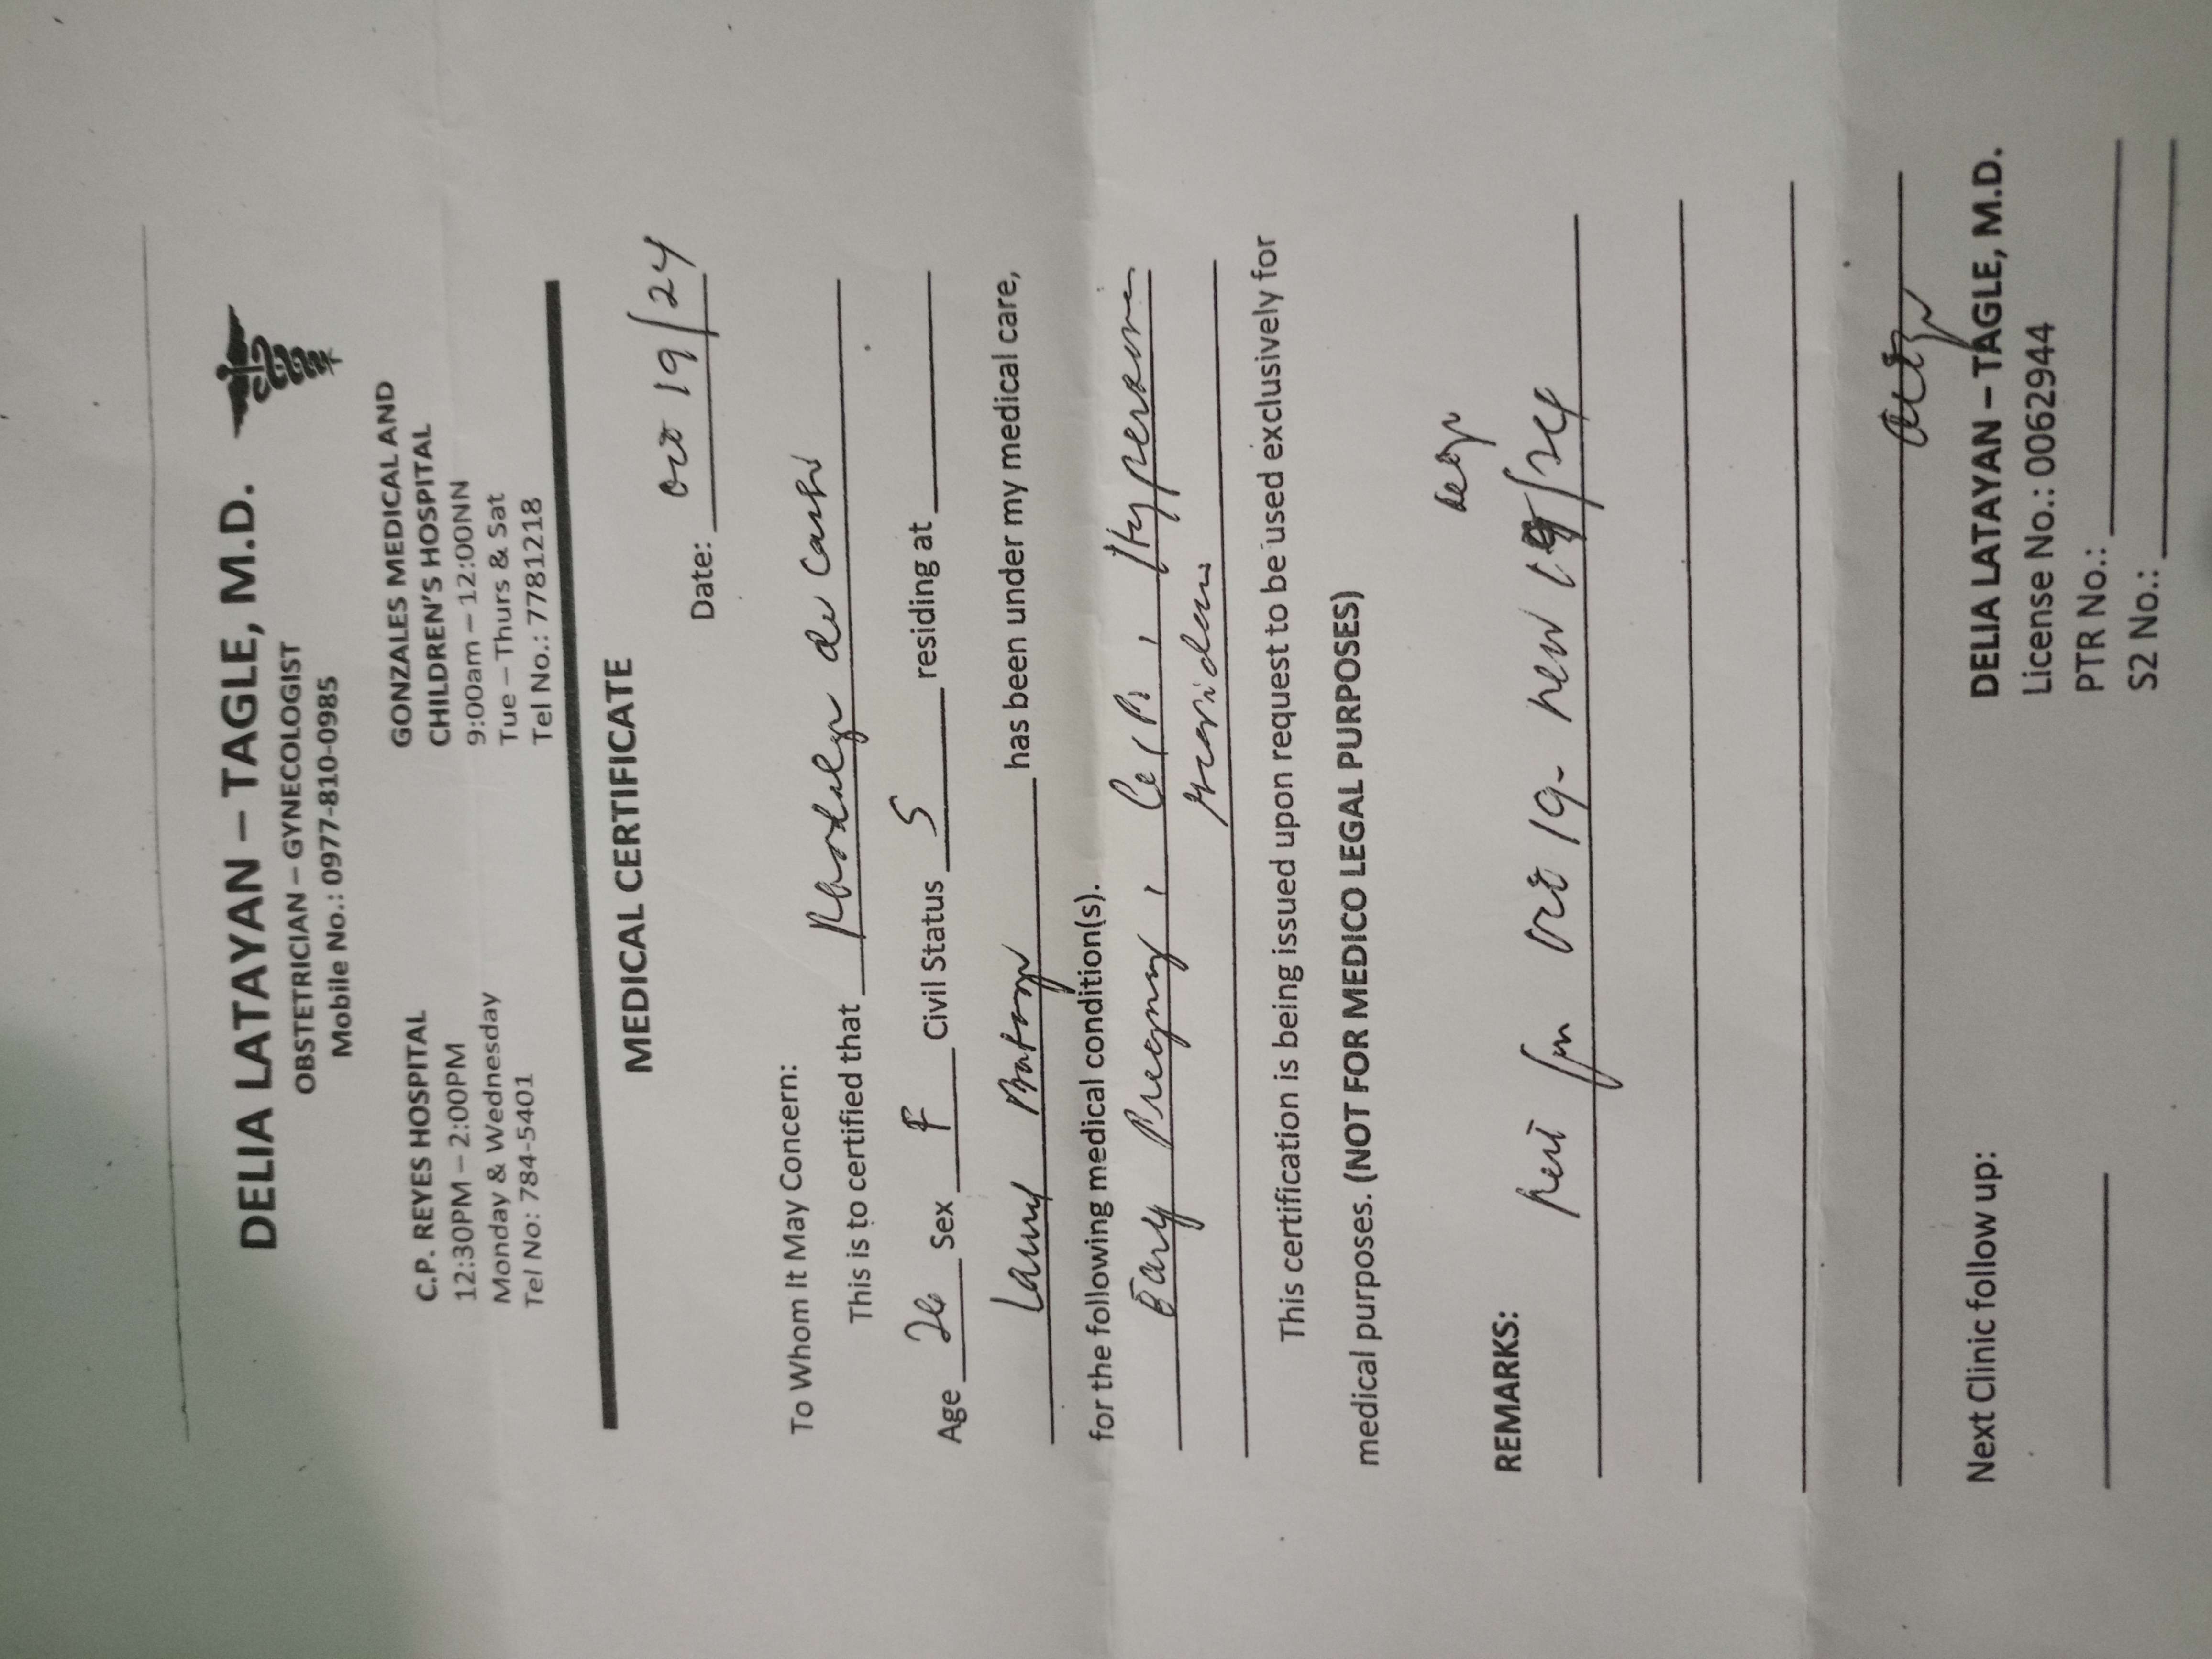 DELIA LATAYAN – TAGLE, M.D.
OBSTETRICIAN – GYNECOLOGIST
Mobile No.: 0977-810-0985
C.P. REYES HOSPITAL
12:30PM – 2:00PM
Monday & Wednesday
Tel No: 784-5401
GONZALES MEDICAL AND
CHILDREN'S HOSPITAL
9:00am – 12:00NN
Tue – Thurs & Sat
Tel No.: 7781218
MEDICAL CERTIFICATE
Date: Oct 19/24
To Whom It May Concern:
This is to certified that de
Age Sex F Civil Status S residing at
has been under my medical care,
for the following medical condition(s).
Early Pregnancy,
This certification is being issued upon request to be used exclusively for
medical purposes. (NOT FOR MEDICO LEGAL PURPOSES)
REMARKS:
Oct 19 - Nov 19/24
Next Clinic follow up:
DELIA LATAYAN – TAGLE, M.D.
License No.: 0062944
PTR No.:
S2 No.: